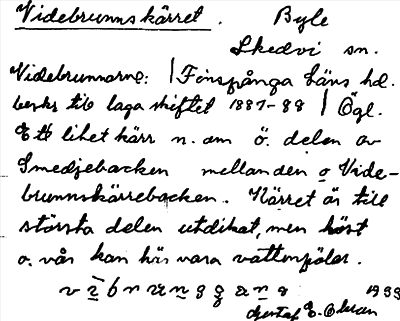 Videbrunnskärret. Byle
Skedvi sn.
Videbrunnarne: | Finspånga läns hd.
beskr till laga skiftet 1887-88 | Ögl.
Ett litet kärr n. om ö. delen av
Smedjebacken mellan den o Vide-
brunnskärrebacken. Kärret är till
största delen utdikat, men höst
o. vår kan här vara vattenpölar.
1933
Gustaf E.